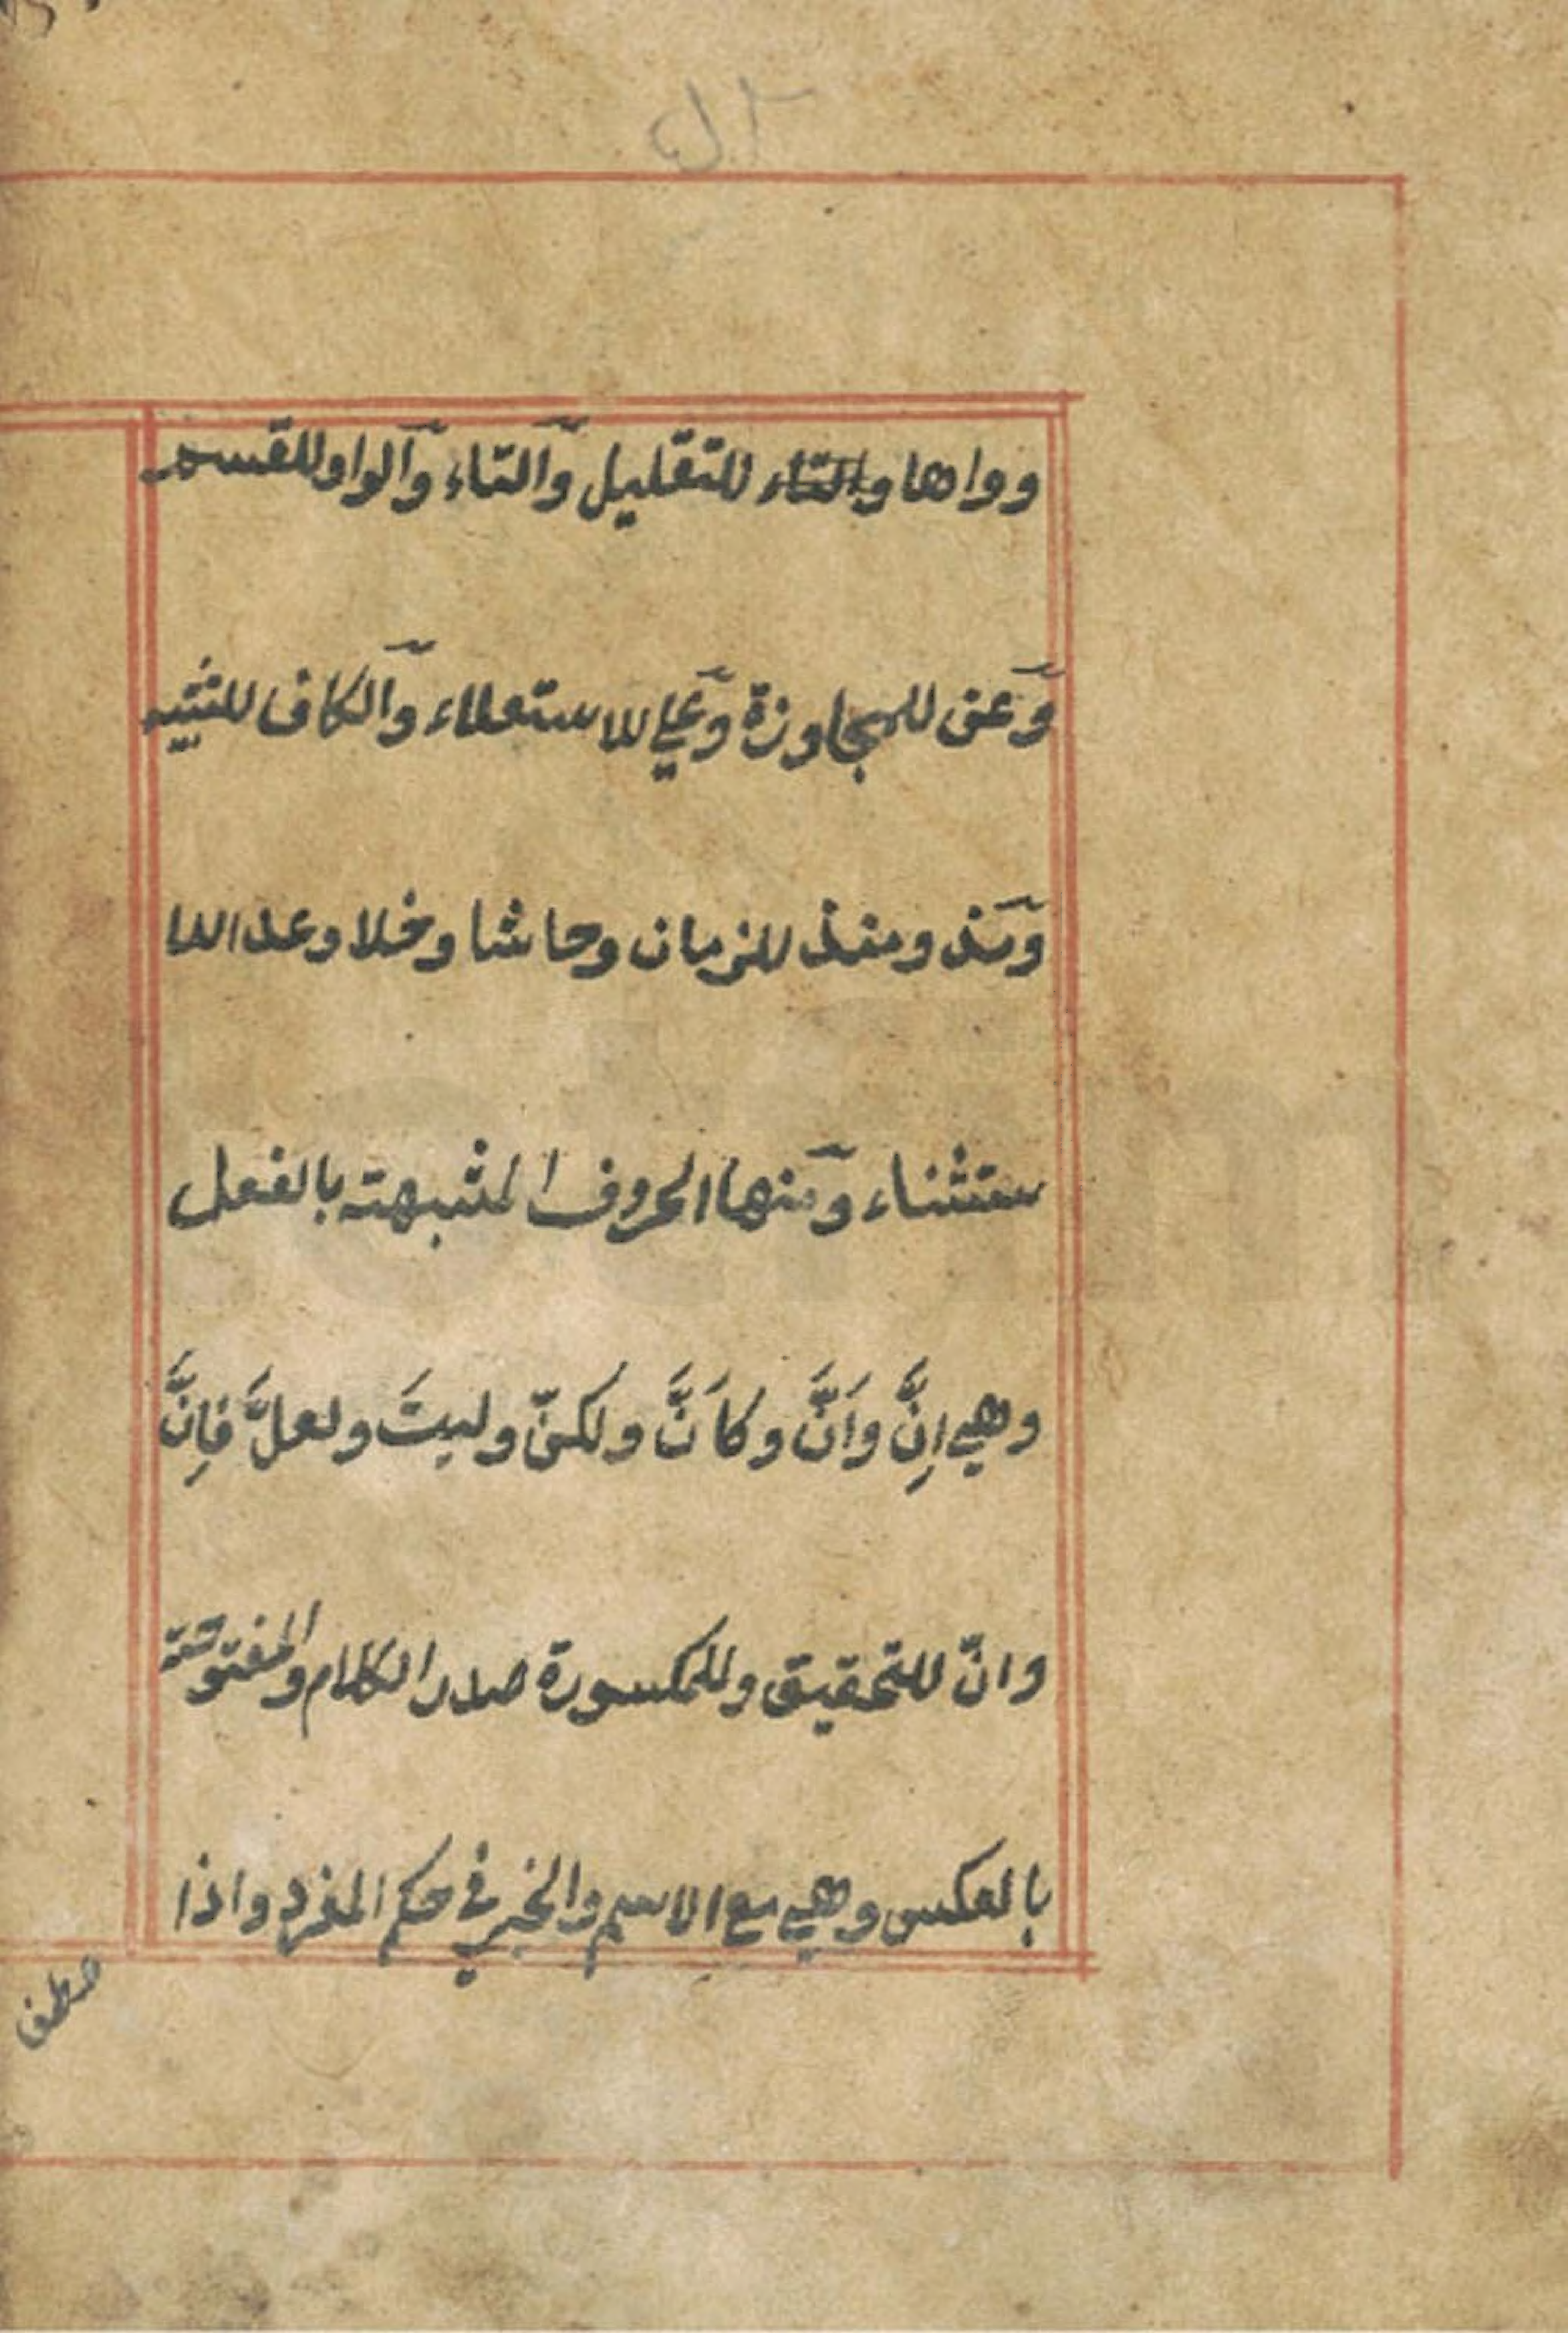 وواوها والتاء للتقليل والتاء والواو للقسم
وعن للمجاوزة وعلي للاستعلاء والكاف للتشبيه
ومذ ومنذ للزمان وحاشا وخلا وعدا للا
ستثناء ومنها الحروف المشبهة بالفعل
وهي اِنَّ واَنَّ وكاَنَّ ولكنّ وليتَ ولعلَّ فاِنَّ
وانّ للتحقيق وللمكسورة صدر الكلام والمفتوحة
بالعكس وهي مع الاسم والخبر في حكم المفرد واذا